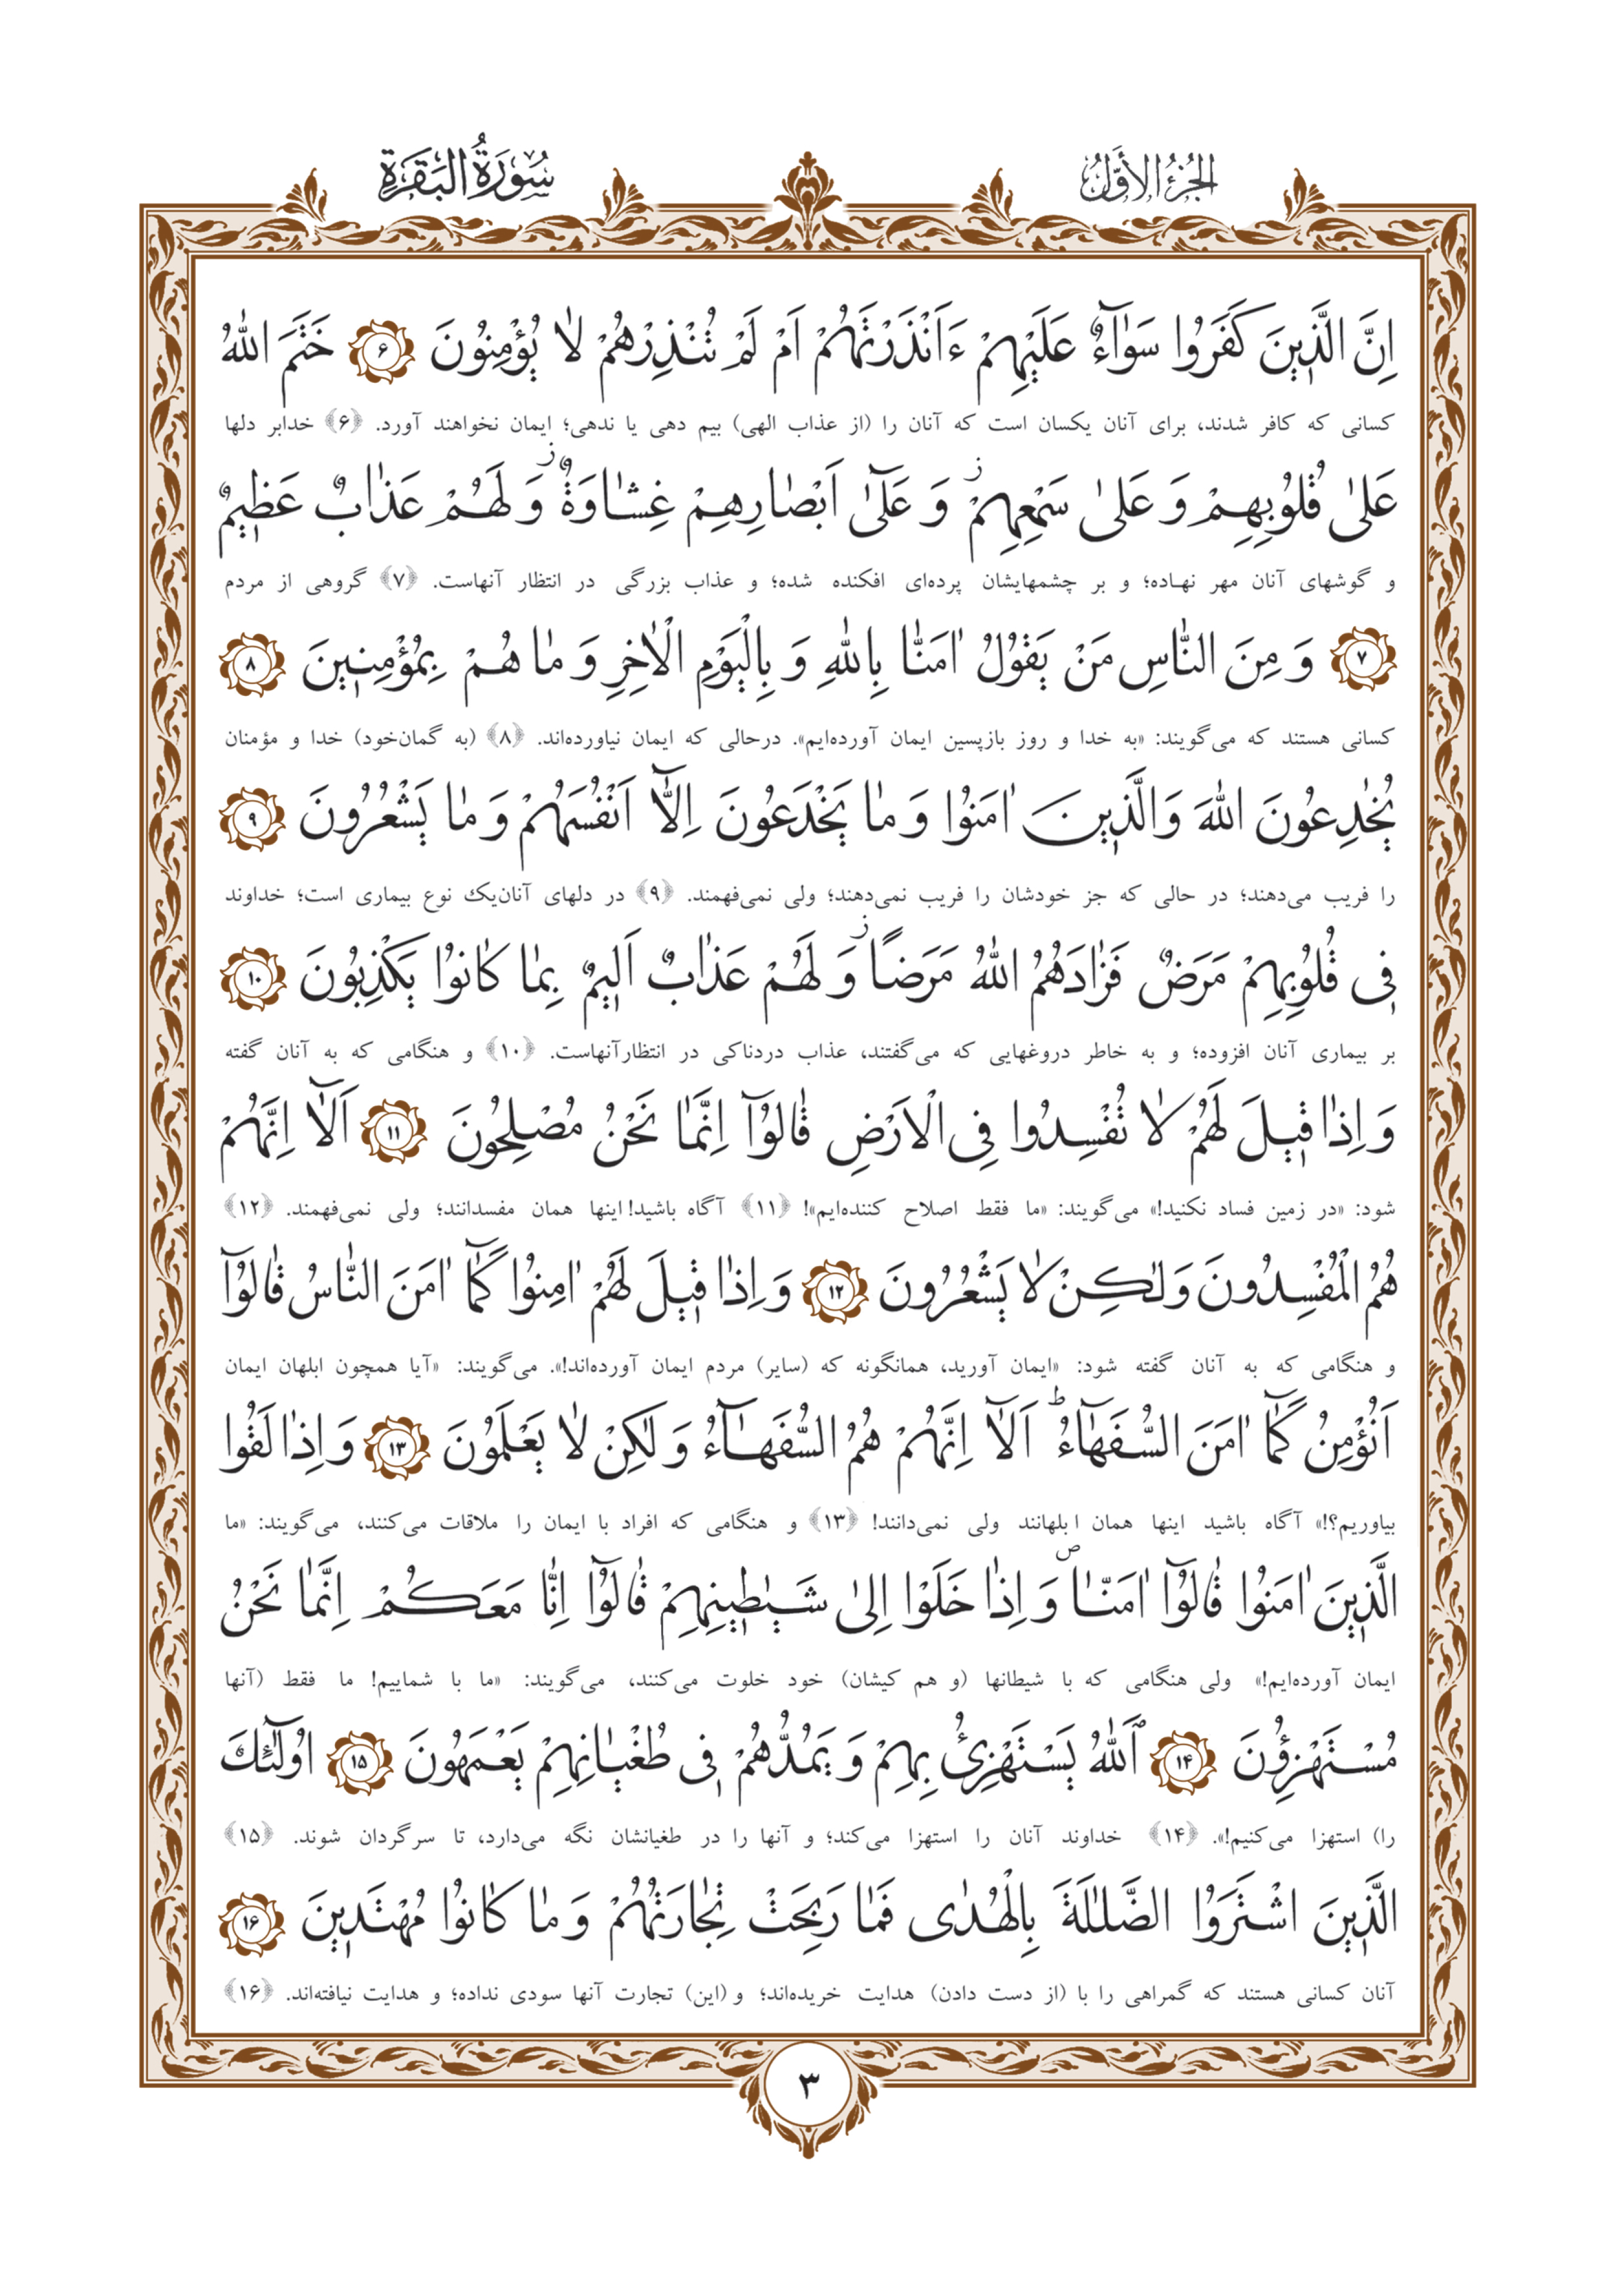 الجزء الأول
سورة البقرة
اِنَّ الَّذینَ کَفَرُوا سَوٰآءٌ عَلَیْهِمْ ءَاَنْذَرْتَهُمْ اَمْ لَمْ تُنْذِرْهُمْ لٰا یُؤْمِنُونَ ۶ خَتَمَ اللّٰهُ
کسانی که کافر شدند، برای آنان یکسان است که آنان را (از عذاب الهی) بیم دهی یا ندهی؛ ایمان نخواهند آورد. ﴿۶﴾ خدابر دلها
عَلیٰ قُلُوبِهِمْ وَ عَلیٰ سَمْعِهِمْ ز وَ عَلیٰٓ اَبْصٰارِهِمْ غِشٰاوَةٌ ز وَ لَهُمْ عَذٰابٌ عَظیمٌ
و گوشهای آنان مهر نهاده؛ و بر چشمهایشان پرده‌ای افکنده شده؛ و عذاب بزرگی در انتظار آنهاست. ﴿۷﴾ گروهی از مردم
۷ وَ مِنَ النّٰاسِ مَنْ یَقُولُ اٰمَنّٰا بِاللّٰهِ وَ بِالْیَوْمِ الْاٰخِرِ وَ مٰا هُمْ بِمُؤْمِنینَ ۸
کسانی هستند که می‌گویند: «به خدا و روز بازپسین ایمان آورده‌ایم». درحالی که ایمان نیاورده‌اند. ﴿۸﴾ (به گمان‌خود) خدا و مؤمنان
یُخٰادِعُونَ اللّٰهَ وَالَّذینَ اٰمَنُوا وَ مٰا یَخْدَعُونَ اِلّٰآ اَنْفُسَهُمْ وَ مٰا یَشْعُرُونَ ۹
را فریب می‌دهند؛ در حالی که جز خودشان را فریب نمی‌دهند؛ ولی نمی‌فهمند. ﴿۹﴾ در دلهای آنان‌یک نوع بیماری است؛ خداوند
فی قُلُوبِهِمْ مَرَضٌ فَزٰادَهُمُ اللّٰهُ مَرَضًا ز وَ لَهُمْ عَذٰابٌ اَلیمٌ بِمٰا کٰانُوا یَکْذِبُونَ ۱۰
بر بیماری آنان افزوده؛ و به خاطر دروغهایی که می‌گفتند، عذاب دردناکی در انتظارآنهاست. ﴿۱۰﴾ و هنگامی که به آنان گفته
وَ اِذٰا قیلَ لَهُمْ لٰا تُفْسِدُوا فِی الْاَرْضِ قٰالُوٓا اِنَّمٰا نَحْنُ مُصْلِحُونَ ۱۱ اَلٰآ اِنَّهُمْ
شود: «در زمین فساد نکنید!» می‌گویند: «ما فقط اصلاح کننده‌ایم»! ﴿۱۱﴾ آگاه باشید! اینها همان مفسدانند؛ ولی نمی‌فهمند. ﴿۱۲﴾
هُمُ الْمُفْسِدُونَ وَلٰکِنْ لٰا یَشْعُرُونَ ۱۲ وَ اِذٰا قیلَ لَهُمْ اٰمِنُوا کَمٰآ اٰمَنَ النّٰاسُ قٰالُوٓا
و هنگامی که به آنان گفته شود: «ایمان آورید، همانگونه که (سایر) مردم ایمان آورده‌اند!». می‌گویند: «آیا همچون ابلهان ایمان
اَنُؤْمِنُ کَمٰآ اٰمَنَ السُّفَهٰآءُ ط اَلٰآ اِنَّهُمْ هُمُ السُّفَهٰآءُ وَ لٰکِنْ لٰا یَعْلَمُونَ ۱۳ وَ اِذٰا لَقُوا
بیاوریم؟!» آگاه باشید اینها همان ابلهانند ولی نمی‌دانند! ﴿۱۳﴾ و هنگامی که افراد با ایمان را ملاقات می‌کنند، می‌گویند: «ما
الَّذینَ اٰمَنُوا قٰالُوٓا اٰمَنّٰا ص وَ اِذٰا خَلَوْا اِلیٰ شَیٰاطینِهِمْ قٰالُوٓا اِنّٰا مَعَکُمْ اِنَّمٰا نَحْنُ
ایمان آورده‌ایم!» ولی هنگامی که با شیطانها (و هم کیشان) خود خلوت می‌کنند، می‌گویند: «ما با شماییم! ما فقط (آنها
مُسْتَهْزِؤُنَ ۱۴ اَللّٰهُ یَسْتَهْزِئُ بِهِمْ وَ یَمُدُّهُمْ فی طُغْیٰانِهِمْ یَعْمَهُونَ ۱۵ اُولٰٓئِکَ
را) استهزا می‌کنیم!». ﴿۱۴﴾ خداوند آنان را استهزا می‌کند؛ و آنها را در طغیانشان نگه می‌دارد، تا سرگردان شوند. ﴿۱۵﴾
الَّذینَ اشْتَرَوُا الضَّلٰالَةَ بِالْهُدٰی فَمٰا رَبِحَتْ تِجٰارَتُهُمْ وَ مٰا کٰانُوا مُهْتَدینَ ۱۶
آنان کسانی هستند که گمراهی را با (از دست دادن) هدایت خریده‌اند؛ و (این) تجارت آنها سودی نداده؛ و هدایت نیافته‌اند. ﴿۱۶﴾
۳